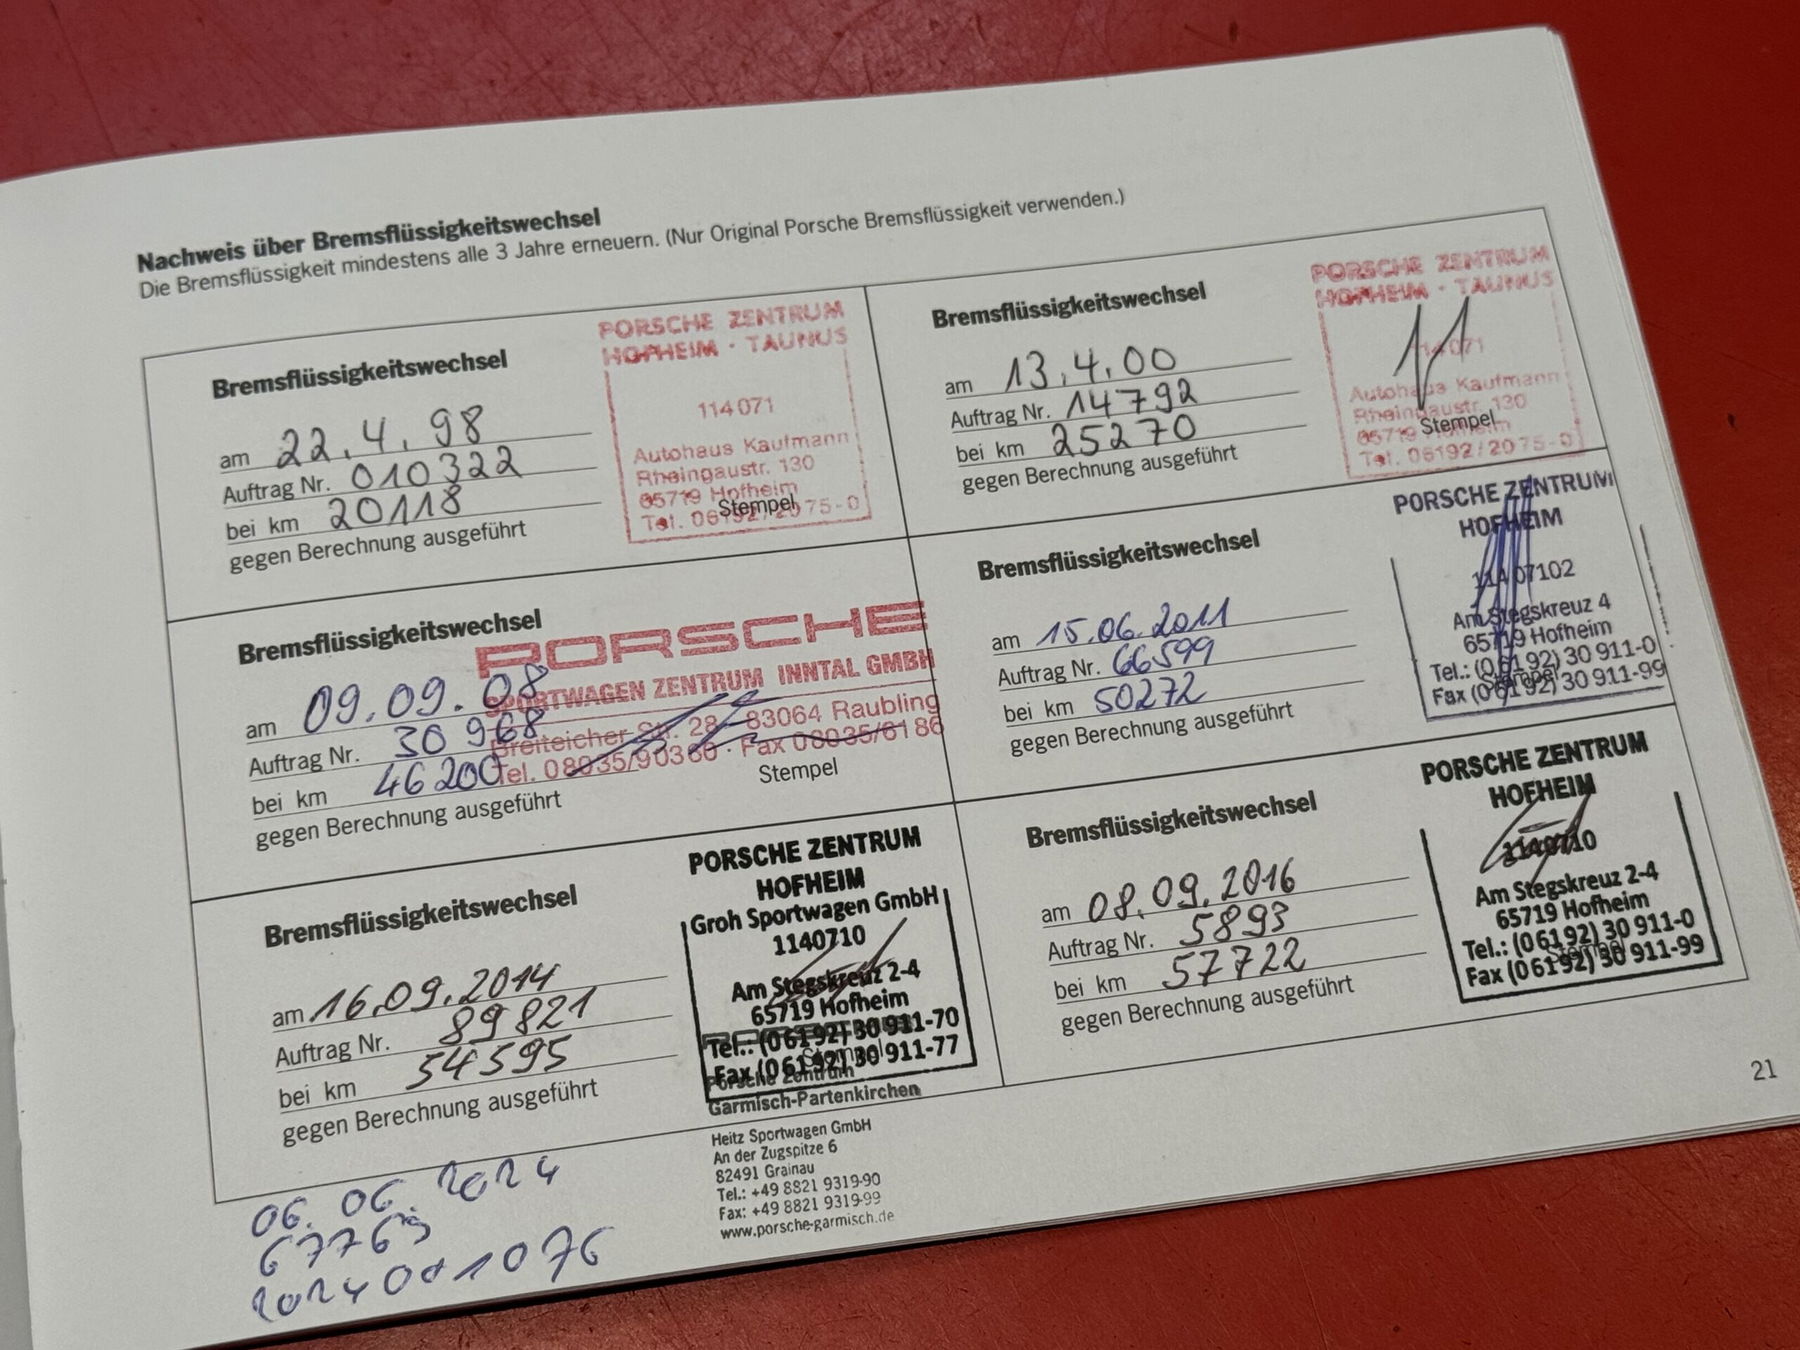 Nachweis über Bremsflüssigkeitswechsel
Die Bremsflüssigkeit mindestens alle 3 Jahre erneuern. (Nur Original Porsche Bremsflüssigkeit verwenden.)
Bremsflüssigkeitswechsel
am 22.4.98
Auftrag Nr. 010322
bei km 20118
gegen Berechnung ausgeführt
PORSCHE ZENTRUM
HOFHEIM · TAUNUS
114071
Autohaus Kaufmann
Rheingaustr. 130
65719 Hofheim
Stempel
Tel. 06192/2075-0
Bremsflüssigkeitswechsel
am 13.4.00
Auftrag Nr. 14792
bei km 25270
gegen Berechnung ausgeführt
PORSCHE ZENTRUM
HOFHEIM · TAUNUS
114071
Autohaus Kaufmann
Rheingaustr. 130
Stempel
65719 Hofheim
Tel. 06192/2075-0
Bremsflüssigkeitswechsel
am 09.09.08
Auftrag Nr. 30968
bei km 46200
gegen Berechnung ausgeführt
PORSCHE
SPORTWAGEN ZENTRUM INNTAL GMBH
Breiteicher Str. 28 · 83064 Raubling
Tel. 08035/90360 · Fax 08035/6186
Stempel
Bremsflüssigkeitswechsel
am 15.06.2011
Auftrag Nr. 66599
bei km 50272
gegen Berechnung ausgeführt
PORSCHE ZENTRUM
HOFHEIM
11407102
Am Stegskreuz 4
65719 Hofheim
Tel.: (06192) 30 911-0
Stempel
Fax (06192) 30 911-99
Bremsflüssigkeitswechsel
am 16.09.2014
Auftrag Nr. 89821
bei km 54595
gegen Berechnung ausgeführt
PORSCHE ZENTRUM
HOFHEIM
Groh Sportwagen GmbH
1140710
Am Stegskreuz 2-4
65719 Hofheim
Tel.: (06192) 30 911-70
Stempel
Fax (06192) 30 911-77
Porsche Zentrum
Garmisch-Partenkirchen
Heitz Sportwagen GmbH
An der Zugspitze 6
82491 Grainau
Tel.: +49 8821 9319-90
Fax: +49 8821 9319-99
www.porsche-garmisch.de
Bremsflüssigkeitswechsel
am 08.09.2016
Auftrag Nr. 5893
bei km 57722
gegen Berechnung ausgeführt
PORSCHE ZENTRUM
HOFHEIM
1140710
Am Stegskreuz 2-4
65719 Hofheim
Tel.: (06192) 30 911-0
Stempel
Fax (06192) 30 911-99
06.06.2024
67769
21